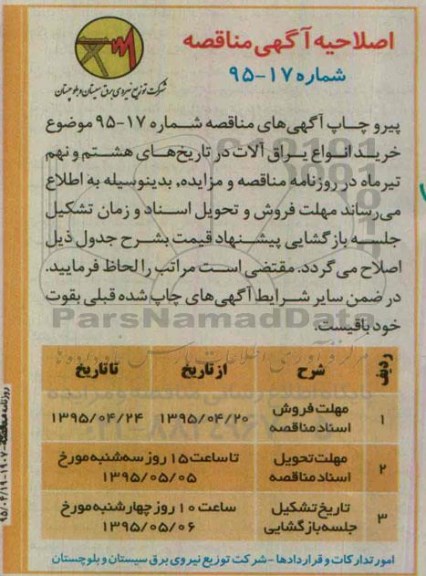 اصلاحیه آگهی مناقصه
شماره ۱۷-۹۵
شرکت توزیع نیروی برق سیستان و بلوچستان
پیرو چاپ آگهی‌های مناقصه شماره ۱۷-۹۵ موضوع
خرید انواع یراق آلات در تاریخ‌های هشتم و نهم
تیرماه در روزنامه مناقصه و مزایده، بدینوسیله به اطلاع
می‌رساند مهلت فروش و تحویل اسناد و زمان تشکیل
جلسه بازگشایی پیشنهاد قیمت بشرح جدول ذیل
اصلاح می‌گردد. مقتضی است مراتب را لحاظ فرمایید.
در ضمن سایر شرایط آگهی‌های چاپ شده قبلی بقوت
خود باقیست.
ParsNamadData
ردیف شرح از تاریخ تا تاریخ
۱ مهلت فروش اسناد مناقصه ۱۳۹۵/۰۴/۲۰ ۱۳۹۵/۰۴/۲۴
۲ مهلت تحویل اسناد مناقصه تا ساعت ۱۵ روز سه‌شنبه مورخ ۱۳۹۵/۰۵/۰۵
۳ تاریخ تشکیل جلسه بازگشایی ساعت ۱۰ روز چهارشنبه مورخ ۱۳۹۵/۰۵/۰۶
امور تدارکات و قراردادها - شرکت توزیع نیروی برق سیستان و بلوچستان